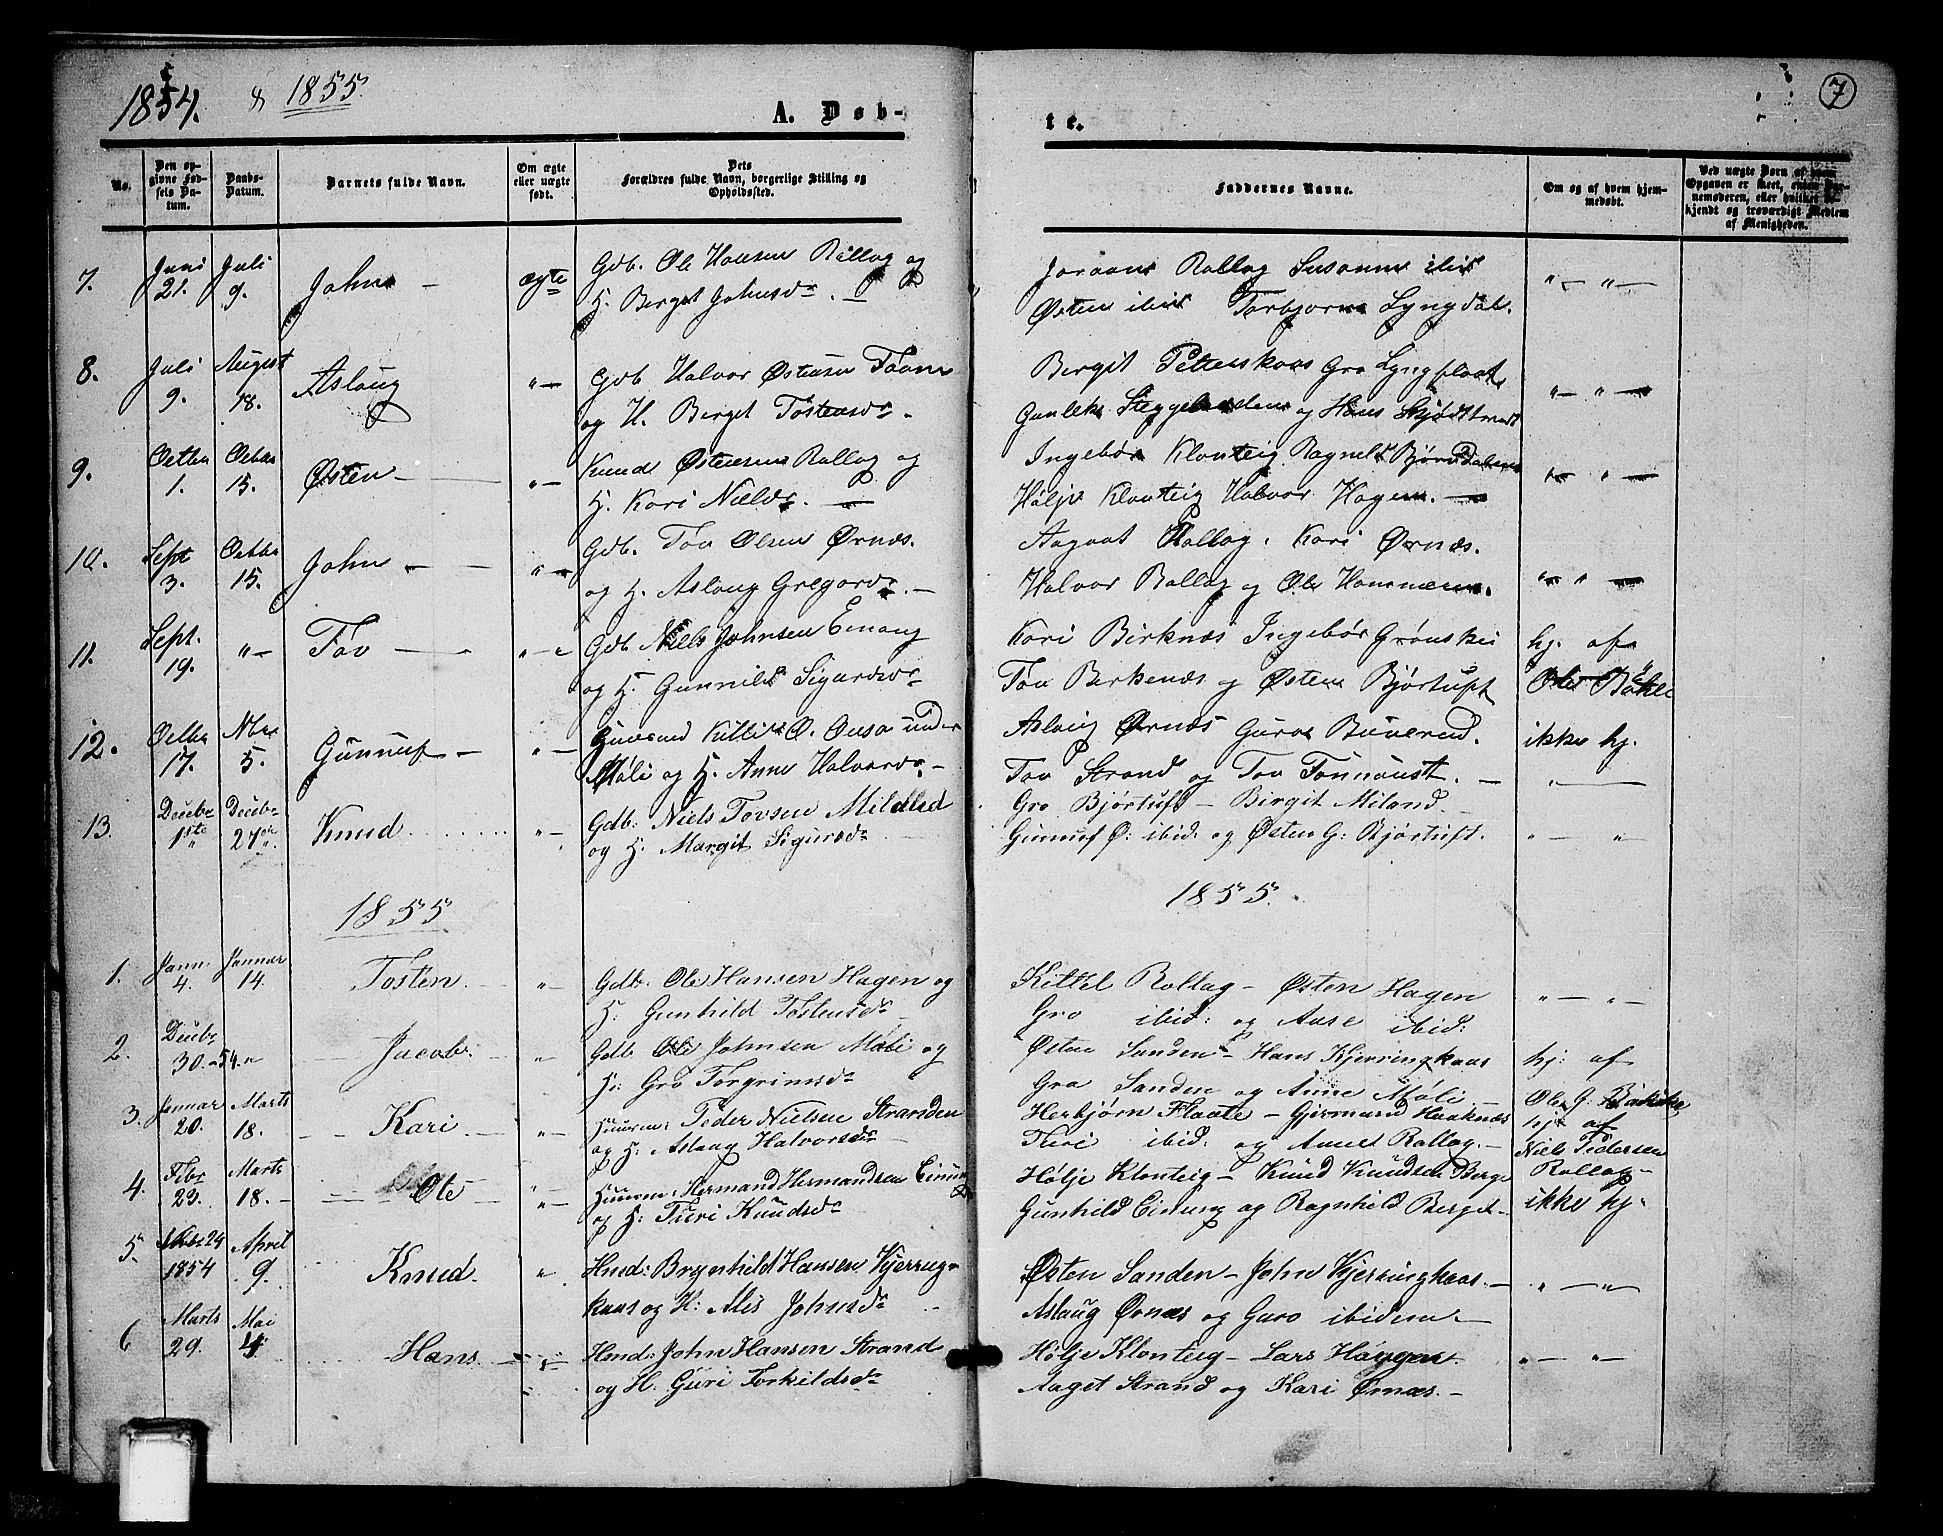 1854. & 1855.
A. Døb-
te.
7
No.
Den opgivne Fødsels Datum.
Daabs-Datum.
Barnets fulde Navn.
Om ægte eller uægte født.
Dets Forældres fulde Navn, borgerlige Stilling og Opholdssted.
Faddernes Navne.
Om og af hvem hjemmedøbt.
Ved uægte Børn af hvem Opgaven er skeet, enten Barnemoderen, eller hvilket bekjendt og troværdigt Medlem af Menigheden.
7. Juni 21. Juli 9. John - ægte Gdb. Ole Hansen Rollag og
H. Berget Johnsdr. -
Joraand Rollag Susanne ibid
Østen ibid Torbjørn Lyngdal. " - " -
8. Juli 9. August 18. Aslaug " - Gdb Halvor Østensen Tovn
og H. Berget Tostensdr -
Bergit Gro
og Hans " - " -
9. Octbr 1. Octbr 15. Østen - " - Knud Østensen Rollag og
H. Kari Nielsdr. -
Ingebør Klonteig Ragnild Bjørndalen
Hølje Klonteig Halvor Hagen. - " - " -
10. Sept 3. Octbr 15. John - " - Gdb. Tov Olsen Ørnæs.
og H. Aslaug Gregarsdr. -
Aagaat Rollag. Kari Ørnæs.
Halvor Rollag og Ole " - " -
11. Sept. 19. " - Tov - " - Gdb Niels Johnsen Einong
og H. Gunnild Sigurdsdr
Kari Birknæs Ingebør Grønskei
Tov Birkenæs og Østen Bjørtuft
hj. af
12. Octbr 17. Nbr 5. Gunnuf - " - Huusmd Kittil O. under
Møli og H. Anne Halvorsdr -
Asloug Ørnæs Guro Buverud.
Tov Strand og Tov . -
ikke hj.
" -
13. Decbr 1ste Decbr 27de Knud. " - Gdb: Niels Tovsen
og H. Margit Sigursdr
Gro Bjørtuft - Birgit Miland.
Gunnuf Ø: ibid: og Østen G: Bjørtuft. " - "
1855 1855.
1. Janu: 4. Januar 14. Tosten. " - Gdb. Ole Hansen Hagen og
H. Gunhild Tostensdr
Kittel Rollag - Østen Hagen
Gro ibid: og Aase ibid: " - " -
2. Decbr 30. - 54. " Jacob. " Gdb Ole Johnsen Møli og
H: Gro Torgrimsdr
Østen Sanden - Hans Kjerringkaas
Gro Sanden og Anne Møli -
hj: af
Ole G:
3. Januar 20. Marts 18. Kari. " - Huusm: Peder Nielsen Stranden
og H: Aslaug Halvorsdr
Herbjørn Flaate - Gjermund Haaknæs
Turi ibid: og Annet Rollag. -
hj: af
Niels Pedersen
Rollag
4. Febr 23. Marts 18. - Ole " - Huusm: Hermand Hermandsen
og H: Turi Knudsdr
Hølje Klonteig - Knud Knudsen Berge
Gunhild og Ragnhild Berget -
ikke hj.
5. 24 1854 April 9. Knud. " Hmd: Brynhild Hansen Kjerring-
kaas og H: Alis Johnsdr
Østen Sanden - John Kjerringkaas. -
Aslaug Ørnæs og Guro ibidem. - " - "
6 Marts 29. Mai 4. Hans. " Hmd: John Hansen Strand
og H. Guri Torkildsdr
Hølje Klonteig - Lars Haugen.
Aaget Strand og Kari Ørnæs. - " - " -